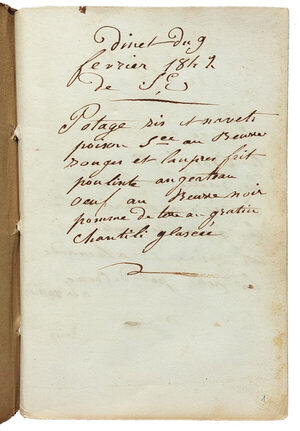 Dinet du 9
fevrier 1842
de S.
Potage ris et navets
poison See au Beurre
rouges et laupres frit
poulinte au gateau
oeuf au Beurre noir
pomme de terre au gratin
chantili glaseu
1